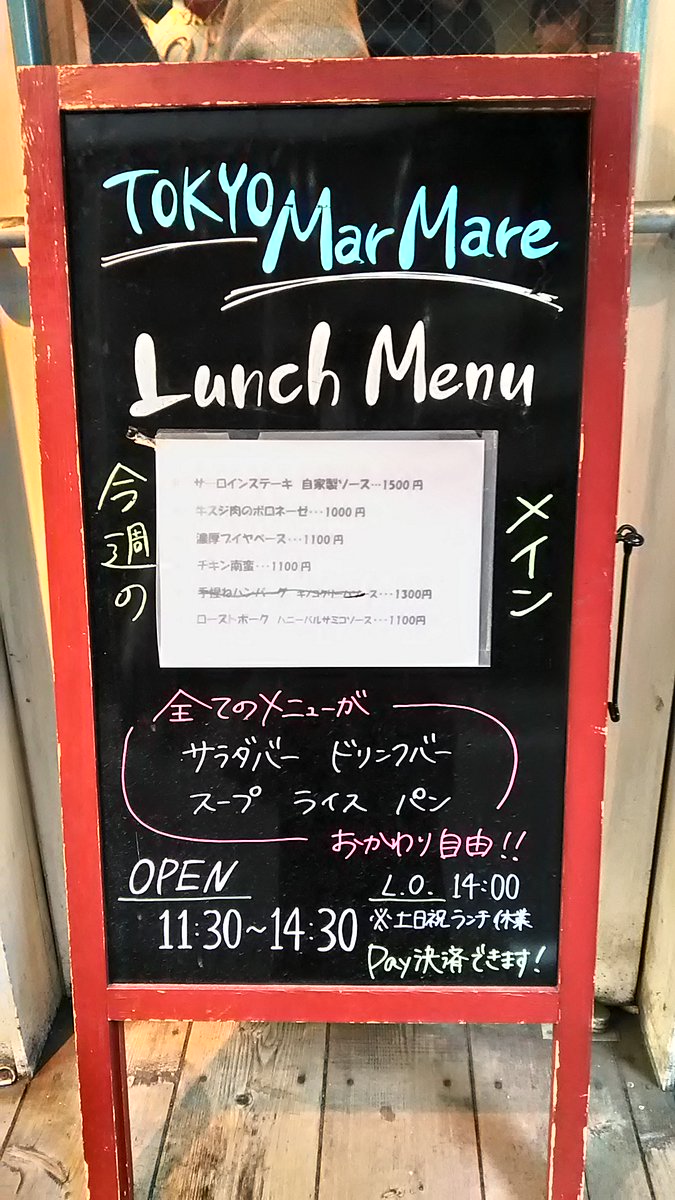 TOKYO
MarMare
Lunch Menu
今週の
メイン
サーロインステーキ 自家製ソース…1500円
牛スジ肉のボロネーゼ…1000円
濃厚ブイヤベース…1100円
チキン南蛮…1100円
手捏ねハンバーグ キノコクリームソース…1300円
ローストポーク ハニーバルサミコソース…1100円
全てのメニューが
サラダバー ドリンクバー
スープ ライス パン
おかわり自由!!
OPEN
11:30~14:30
L.O. 14:00
※土日祝ランチ休業
Pay決済できます!